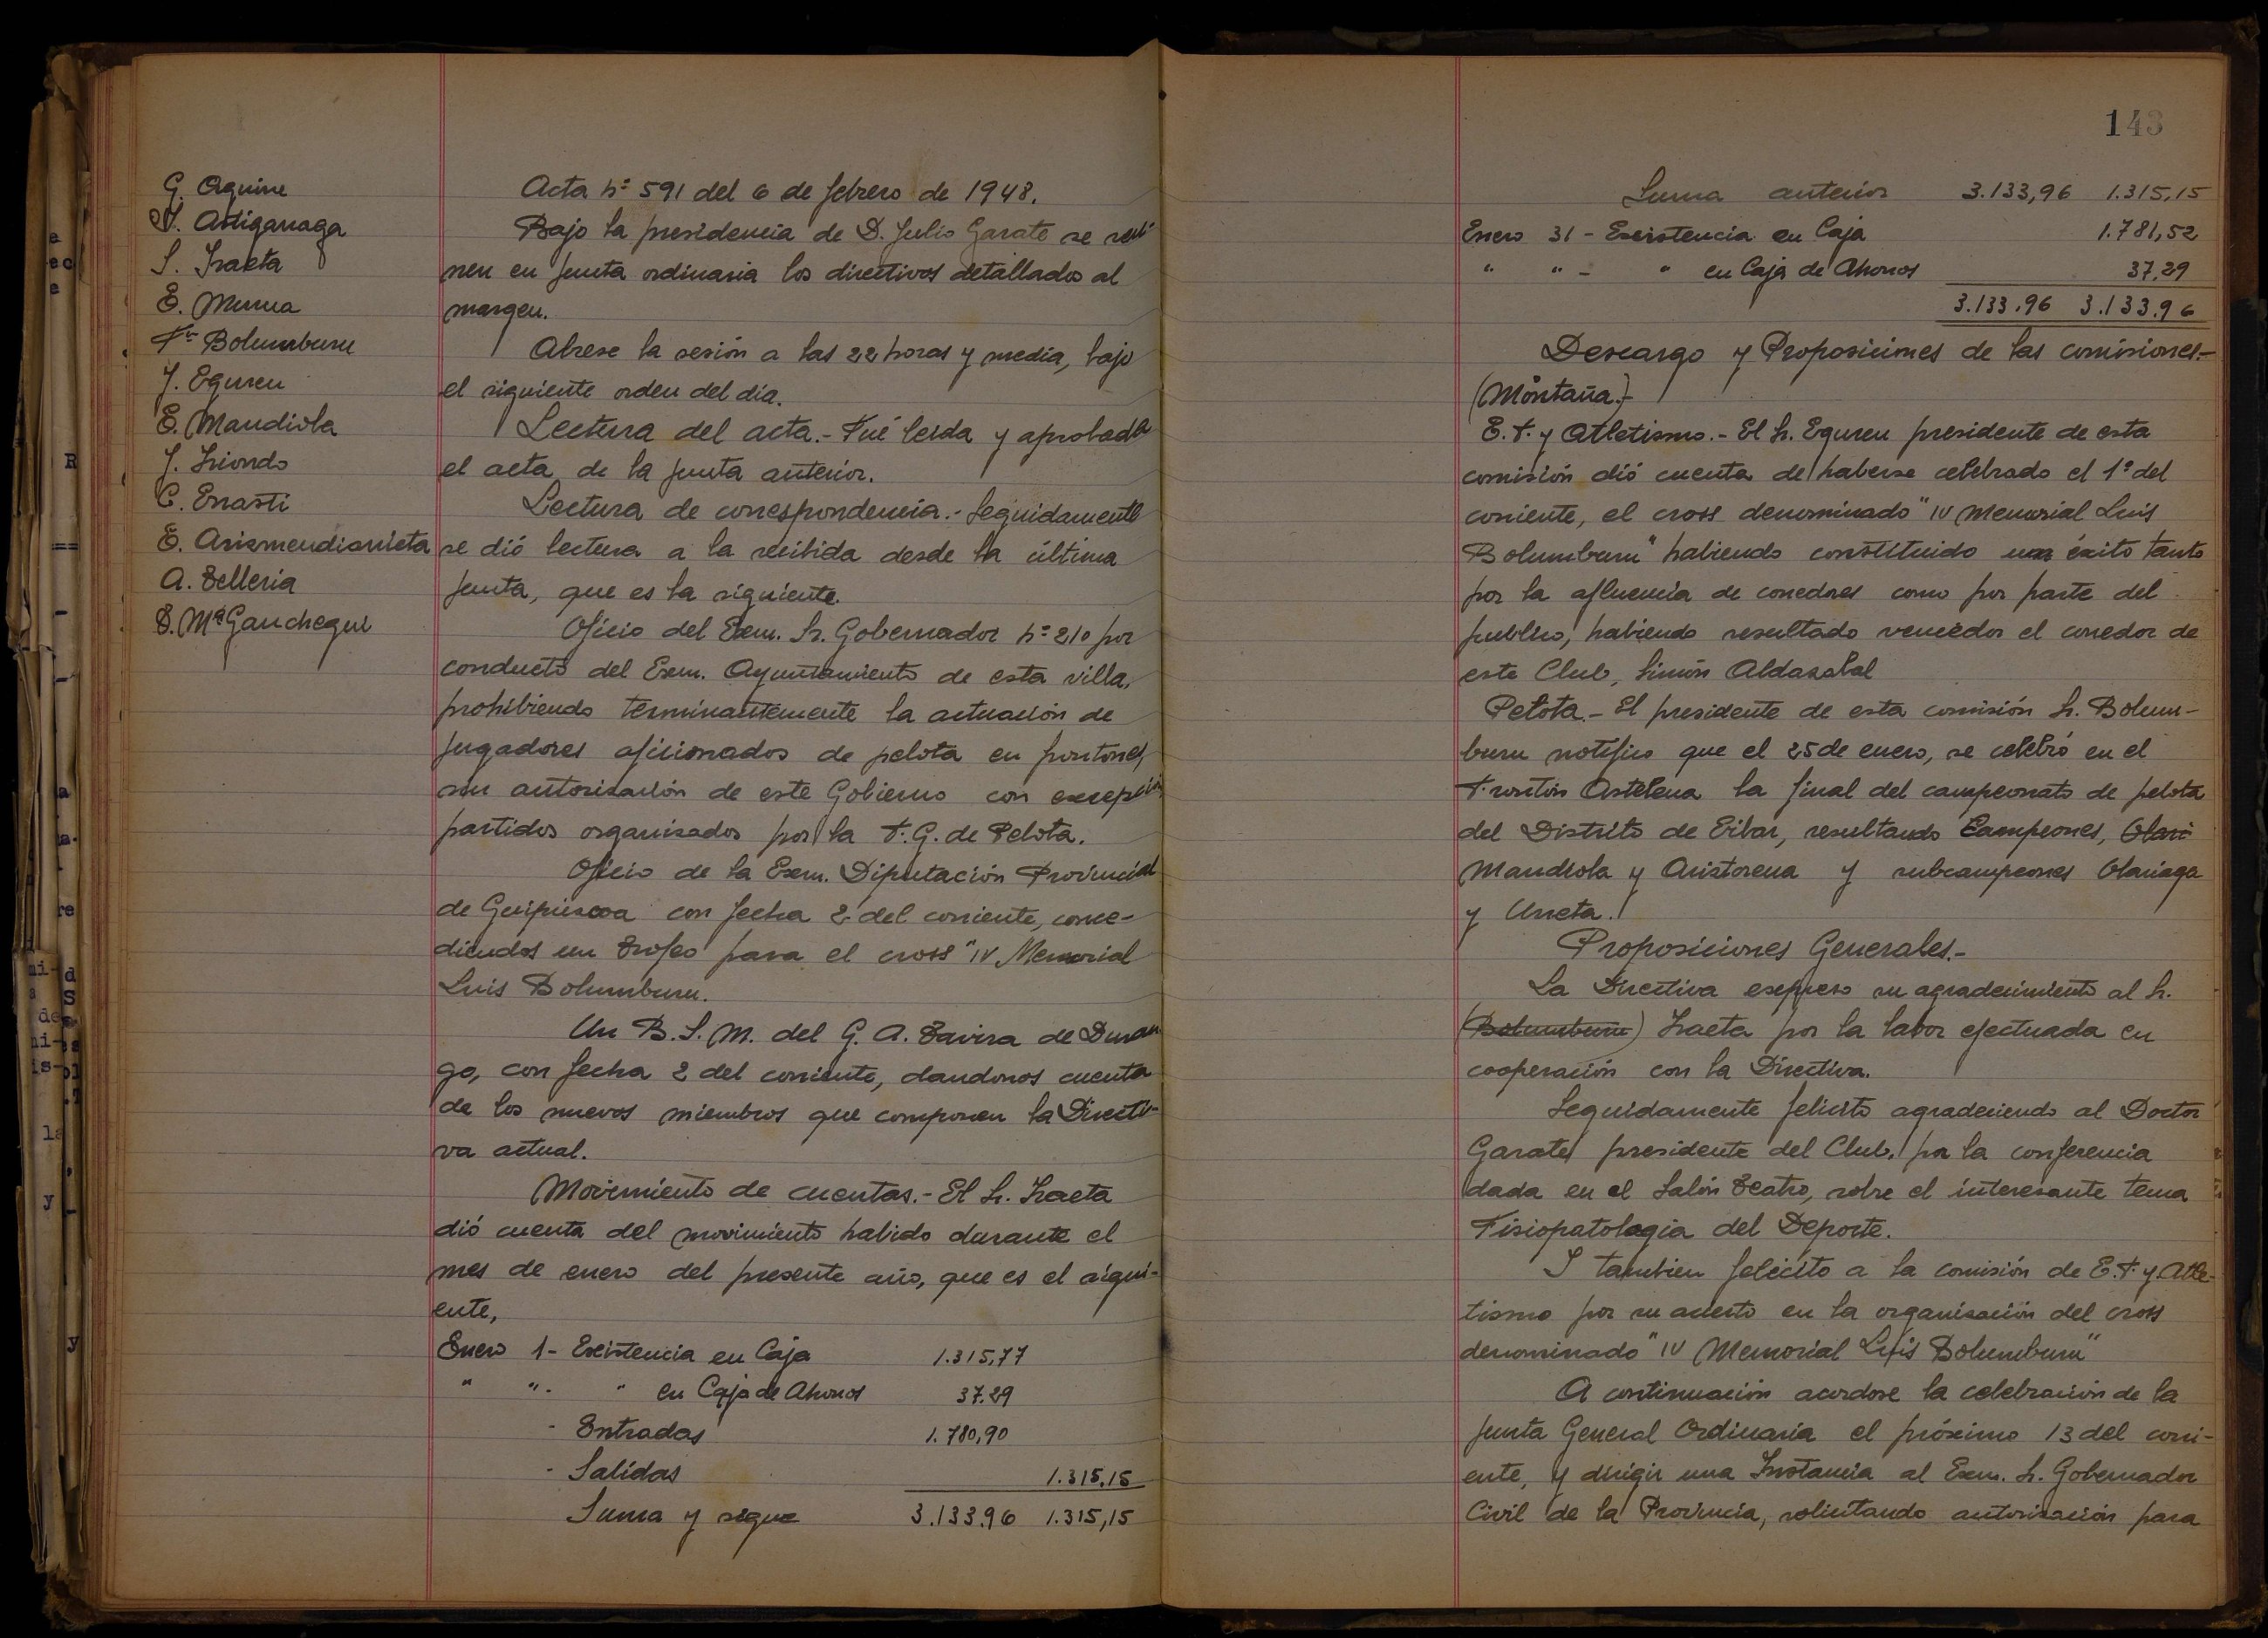 G. Aguirre
J. Astigarraga
S. Iraeta
E. Murua
Fr Bolumburu
J. Eguren
E. Mandiola
J. Iriondo
C. Errasti
E. Arizmendiarrieta
A. Telleria
T. Mª Ganchegui
Acta nº 591 del 6 de febrero de 1948.
Bajo la presidencia de D. Julio Garate se reú-
nen en junta ordinaria los directivos detallados al
margen.
Abrese la sesión a las 22 horas y media, bajo
el siguiente orden del día.
Lectura del acta.- Fué leida y aprobada
el acta de la junta anterior.
Lectura de correspondencia.- Seguidamente
se dió lectura a la recibida desde la última
junta, que es la siguiente.
Oficio del Exm. Sr. Gobernador nº 210 por
conducto del Exm. Ayuntamiento de esta villa,
prohibiendo terminantemente la actuación de
jugadores aficionados de pelota en frontones,
sin autorización de este Gobierno con excepción
partidos organizados por la F. G. de Pelota.
Oficio de la Exm. Diputación Provincial
de Guipúzcoa con fecha 2 del corriente, conce-
diendos un trofeo para el cross "IV Memorial
Luis Bolumburu.
Un B. L. M. del G. A. Tavira de Duran
go, con fecha 2 del corriente, dandonos cuenta
de los nuevos miembros que componen la Directi-
va actual.
Movimiento de cuentas.- El Sr. Iraeta
dió cuenta del movimiento habido durante el
mes de enero del presente año, que es el sigui-
ente,
Enero 1- Existencia en Caja 1.315,77
" "- " en Caja de Ahorros 37.29
- Entradas 1.780,90
- Salidas 1.315,15
Suma y sigue 3.133.96 1.315,15
143
Suma anterior 3.133,96 1.315,15
Enero 31 - Existencia en Caja 1.781,52
" "- " en Caja de Ahorros 37,29
3.133.96 3.133.96
Descargo y Proposiciones de las comisiones.-
(Montaña.)-
E. F. y Atletismo.- El Sr. Eguren presidente de esta
comisión dió cuenta de haberse celebrado el 1º del
corriente, el cross denominado "IV Memorial Luis
Bolumburu" habiendo constituido un éxito tanto
por la afluencia de corredores como por parte del
publico, habiendo resultado vencedor el corredor de
este Club, Simón Aldazabal
Pelota.- El presidente de esta comisión Sr. Bolum-
buru notifico que el 25 de enero, se celebró en el
Frontón Astelena la final del campeonato de pelota
del Distrito de Eibar, resultando Campeones, Olari
Mandiola y Aristorena y subcampeones Olariaga
y Urreta.
Proposiciones Generales.-
La Directiva expreso su agradecimiento al Sr.
(Bolumburu) Iraeta por la labor efectuada en
cooperación con la Directiva.
Seguidamente felicito agradeciendo al Doctor
Garate presidente del Club, por la conferencia
dada en el Salón Teatro, sobre el interesante tema
Fisiopatologia del Deporte.
I tambien felicito a la comisión de E. F. y Atle-
tismo por su acierto en la organización del cross
denominado "IV Memorial Luis Bolumburu"
A continuación acordose la celebración de la
Junta General Ordinaria el próximo 13 del corri-
ente, y dirigir una Instancia al Exm. Sr. Gobernador
Civil de la Provincia, solicitando autorización para